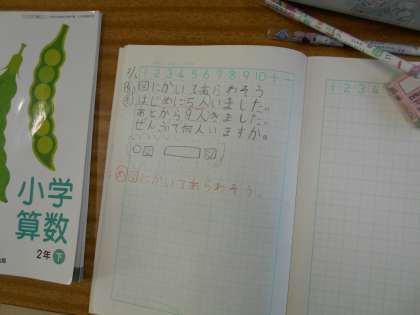 小学
算数
2年 下
1 2 3 4 5 6 7 8 9 10 + −
図にかいてあらわそう
はじめに5人いました。
あとから9人きました。
ぜんぶで何人いますか。
○図 図
め 図にかいてあらわそう。
1 2 3 4